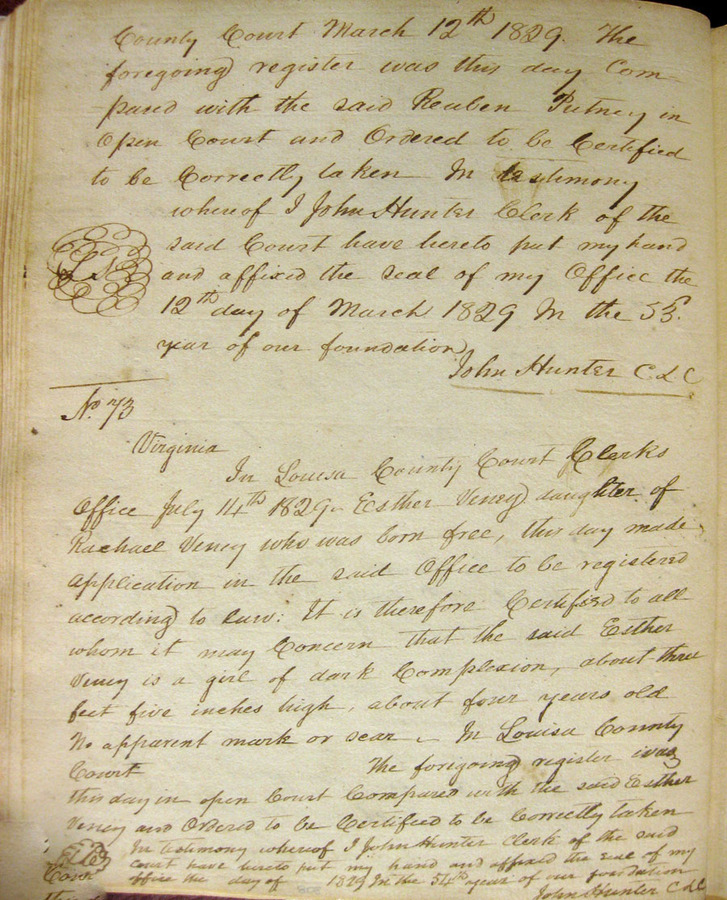 County Court March 12th 1829. The
foregoing register was this day Com-
-pared with the said Reuben Putney in
Open Court and Ordered to be Certified
to be Correctly taken In testimony
whereof I John Hunter Clerk of the
said Court have hereto put my hand
and affixed the seal of my Office the
12th day of March 1829 In the 53d
year of our foundation
John Hunter C L C
No. 73
Virginia
In Louisa County Court Clerks
Office July 14th 1829. Esther Veney daughter of
Rachael Veney who was born free, this day made
application in the said Office to be registered
according to law: It is therefore Certified to all
whom it may Concern that the said Esther
Veney is a girl of dark Complexion, about three
feet five inches high, about four years old
No apparent mark or scar. In Louisa County
Court The foregoing register was
this day in open Court Compared with the said Esther
Veney and Ordered to be Certified to be Correctly taken
In testimony whereof I John Hunter Clerk of the said
Court have hereto put my hand and affixed the seal of my
office the day of 1829 In the 54th year of our foundation
John Hunter C L C